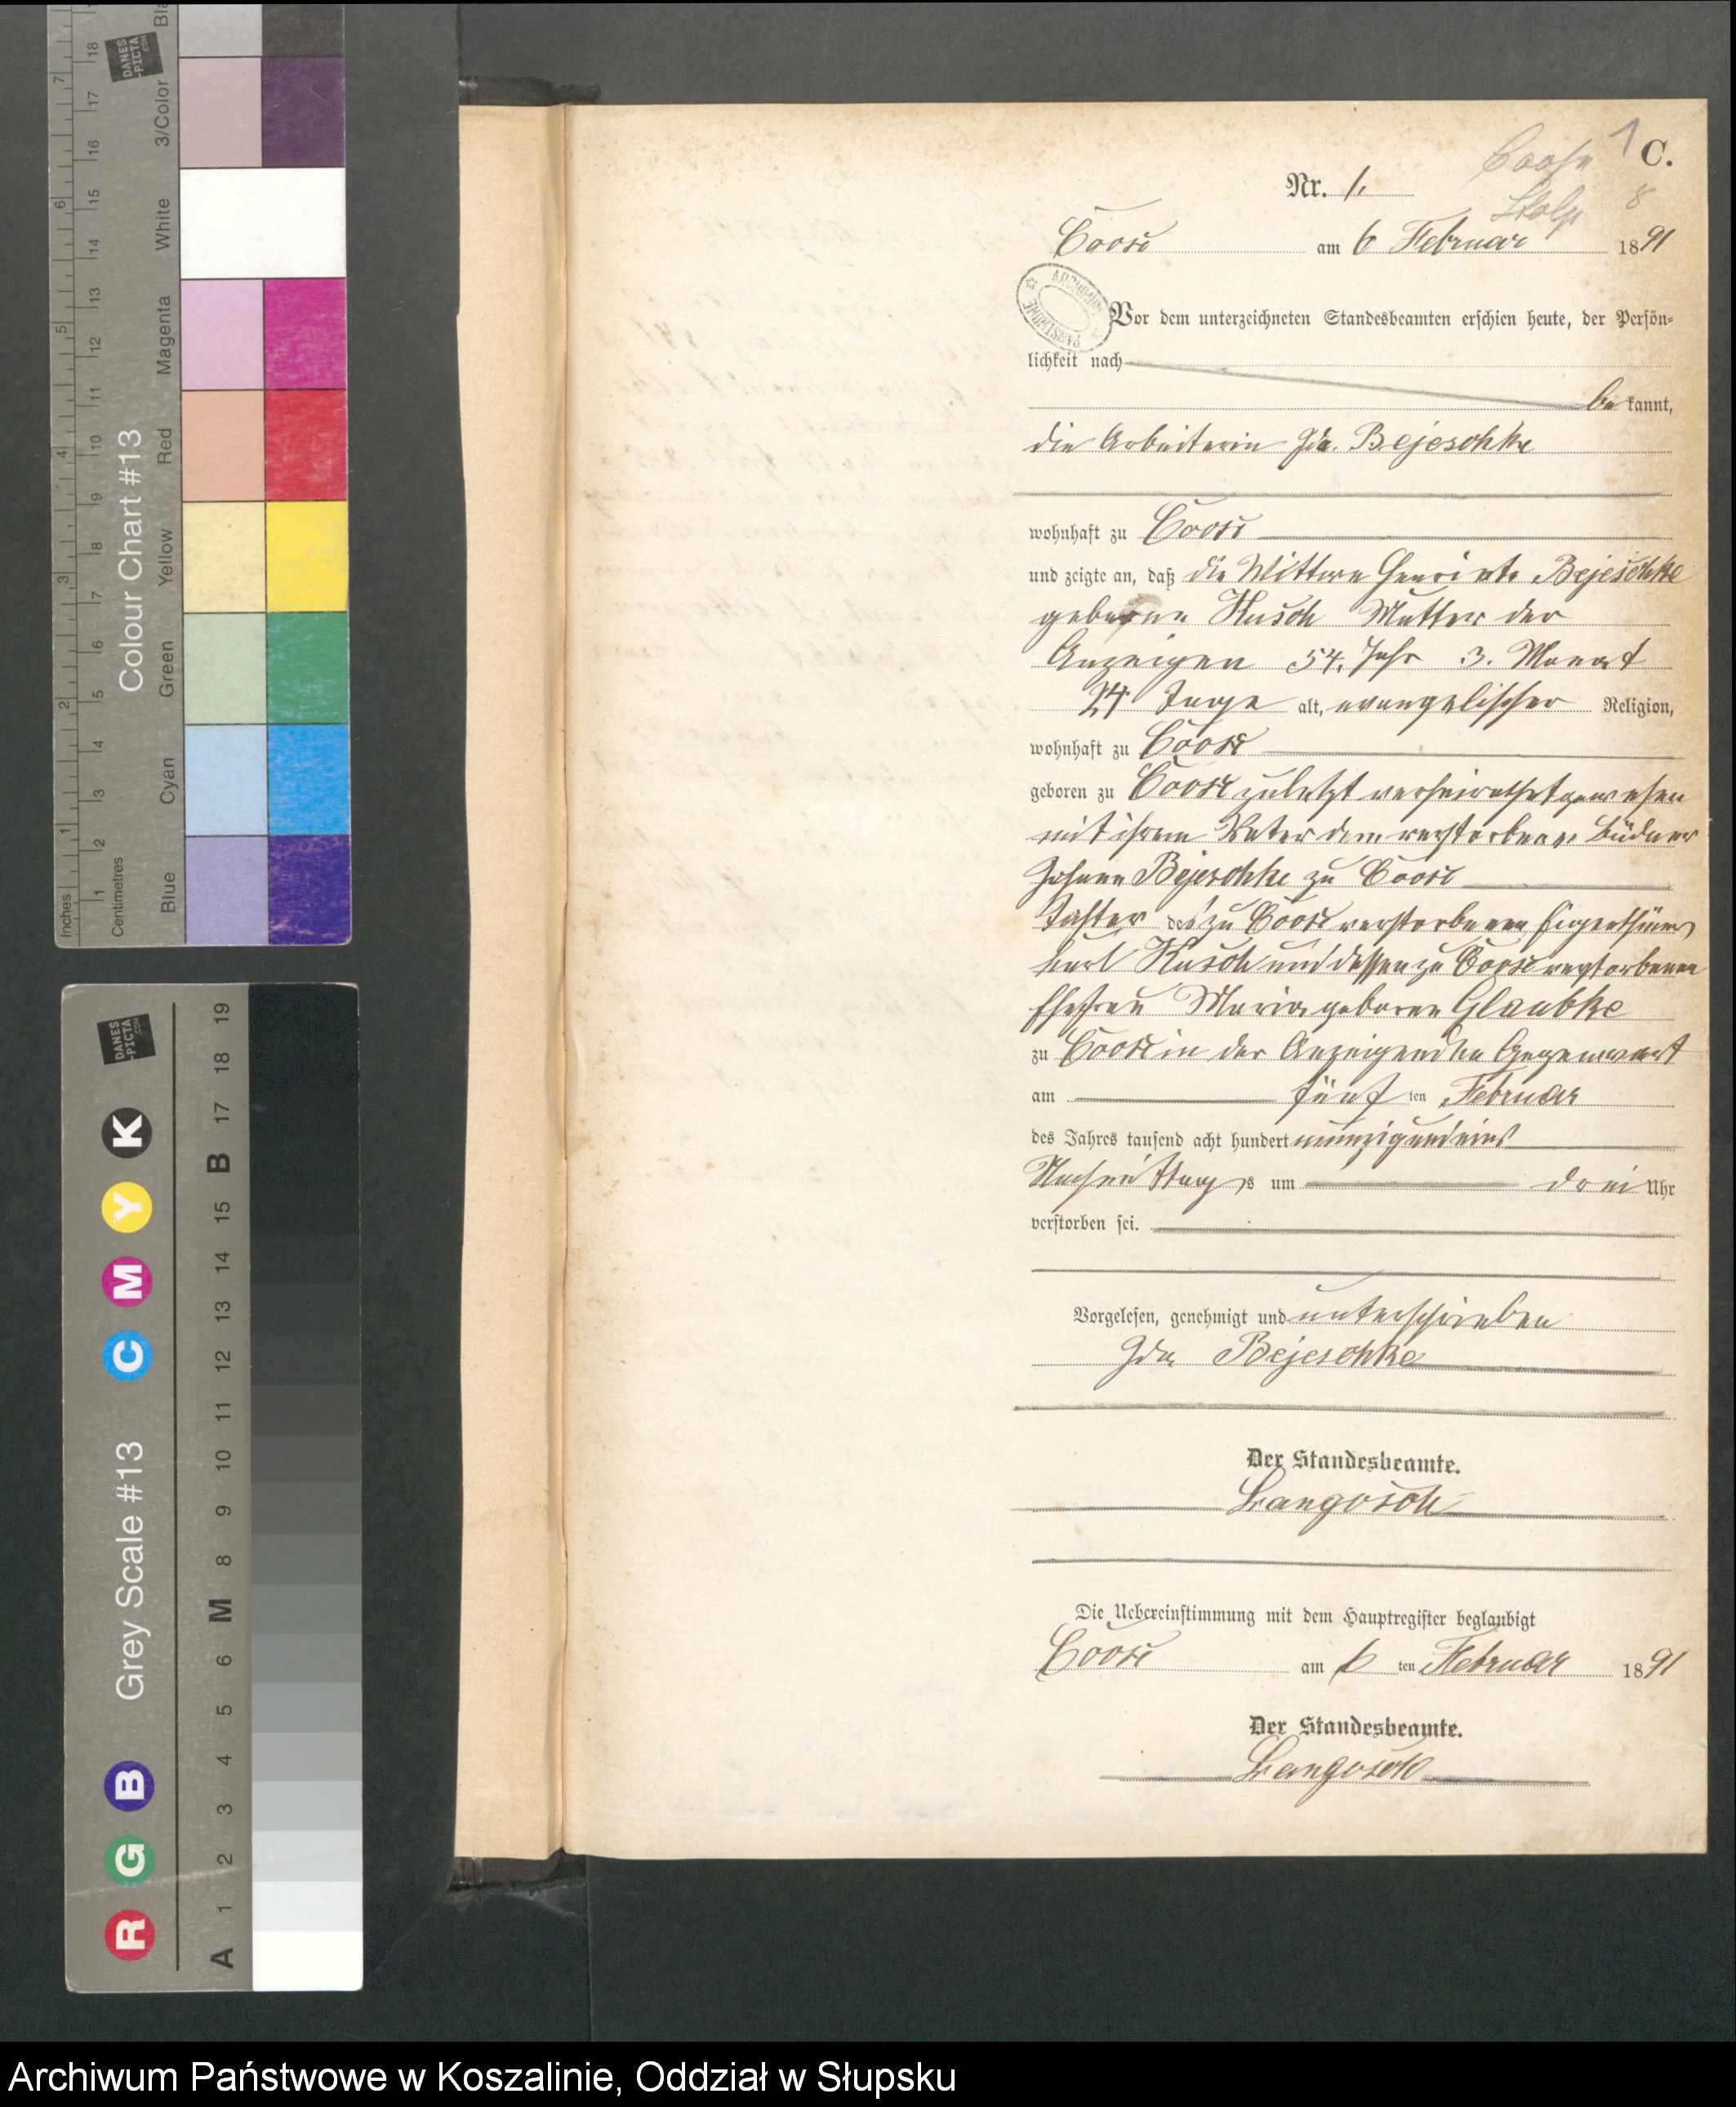 Coose 1 C.
Nr. 1.
Stolp 8
Coose am 6 Februar 1891
ARCHIWUM PAŃSTWOWE
Vor dem unterzeichneten Standesbeamten erschien heute, der Persön-
lichkeit nach
be kannt,
die Arbeiterin Ida Bejeschke
wohnhaft zu Coose
und zeigte an, daß die Wittwe Henriette Bejeschke
geborene Kusch Mutter der
Anzeigen 54. Jahr 3. Monat
24 Tage alt, evangelischer Religion,
wohnhaft zu Coose
geboren zu Coose zuletzt verheirathet gewesen
mit ihrem Vater dem verstorbenen Büdner
Johann Bejeschke zu Coose
Tochter des zu Coose verstorbenen Eigenthümers
Karl Kusch und dessen zu Coose verstorbenen
Ehefrau Maria geborene Glaubke
zu Coose in der Anzeigenden Gegenwart
am fünf ten Februar
des Jahres tausend acht hundert neunzig und eins
Nachmittags um drei Uhr
verstorben sei.
Vorgelesen, genehmigt und unterschrieben
Ida Bejeschke
Der Standesbeamte.
Langosch
Die Uebereinstimmung mit dem Hauptregister beglaubigt
Coose am 6 ten Februar 1891
Der Standesbeamte.
Langosch
DANES-PICTA.COM
Colour Chart #13
Inches 1 2 3 4 5 6 7
Centimetres 1 2 3 4 5 6 7 8 9 10 11 12 13 14 15 16 17 18
Blue Cyan Green Yellow Red Magenta White 3/Color Bla
DANES-PICTA.COM
Grey Scale #13
R G B C M Y K
A 1 2 3 4 5 6 M 8 9 10 11 12 13 14 15 B 17 18 19
Archiwum Państwowe w Koszalinie, Oddział w Słupsku